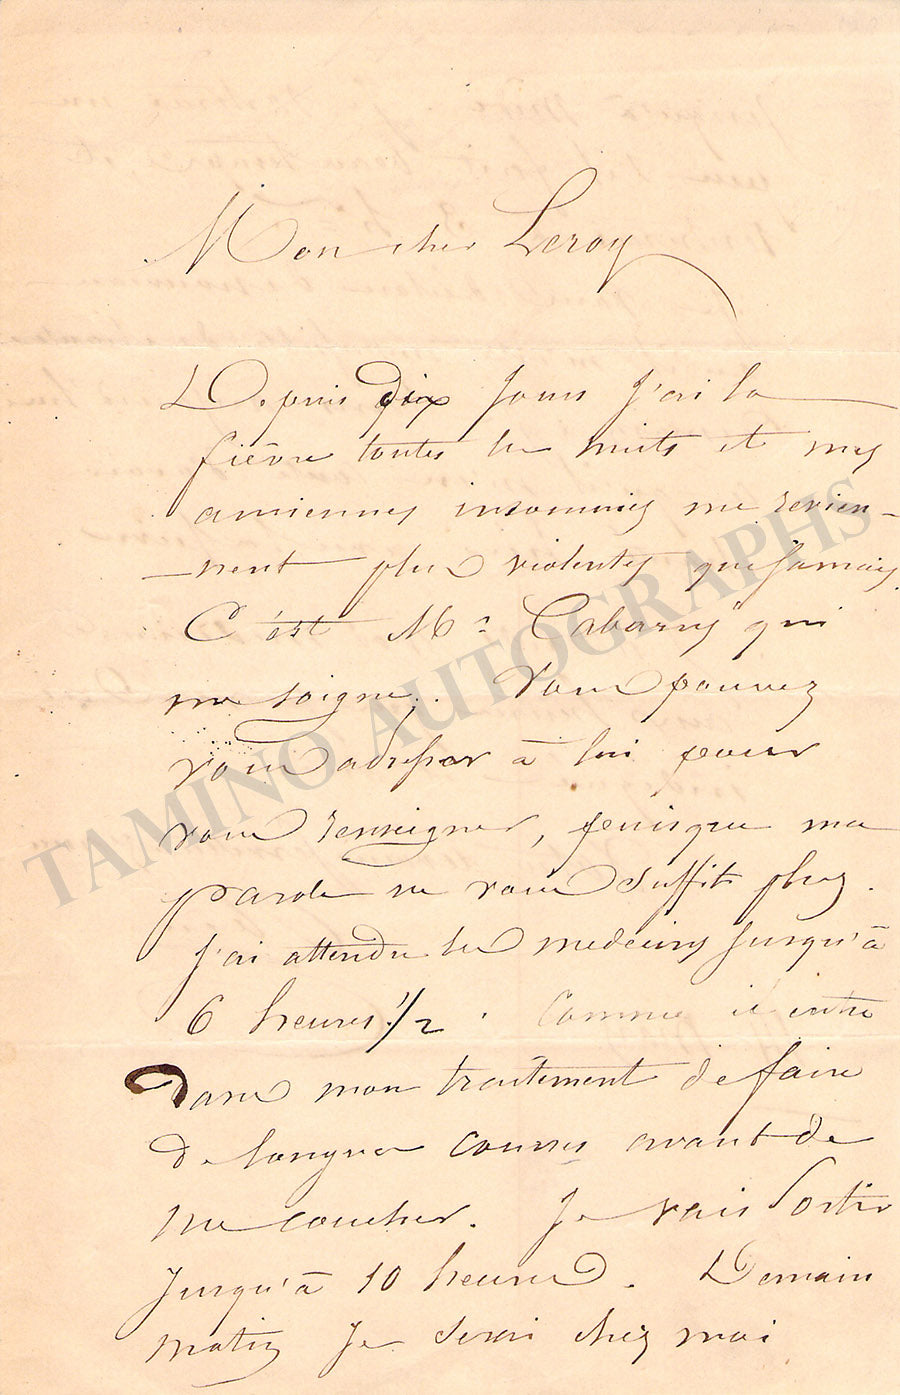 Mon cher Leroy
Depuis dix jours j'ai la
fièvre toutes les nuits et mes
anciennes insomnies me revien-
nent plus violentes que jamais.
C'est Mr. Cabarrus qui
me soigne. Vous pouvez
vous adresser à lui pour
vous renseigner, puisque ma
parole ne vous suffit plus.
J'ai attendu les medecins jusqu'à
6 heures 1/2. Comme il entre
dans mon traitement de faire
de longues courses avant de
me coucher. Je vais sortir
jusqu'à 10 heures. Demain
matin je serai chez moi
TAMINO AUTOGRAPHS